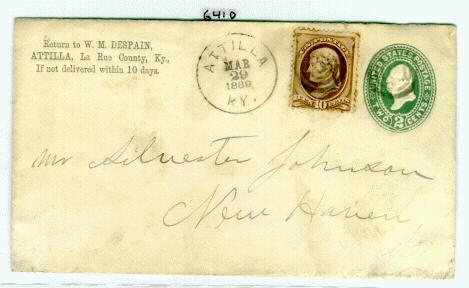 6410
Return to W. M. DESPAIN,
ATTILLA, La Rue County, Ky.,
If not delivered within 10 days.
ATTILLA
MAR
29
1889
KY.
10
UNITED STATES POSTAGE
TWO 2 CENTS
Mr Silvester Johnson
New Haven